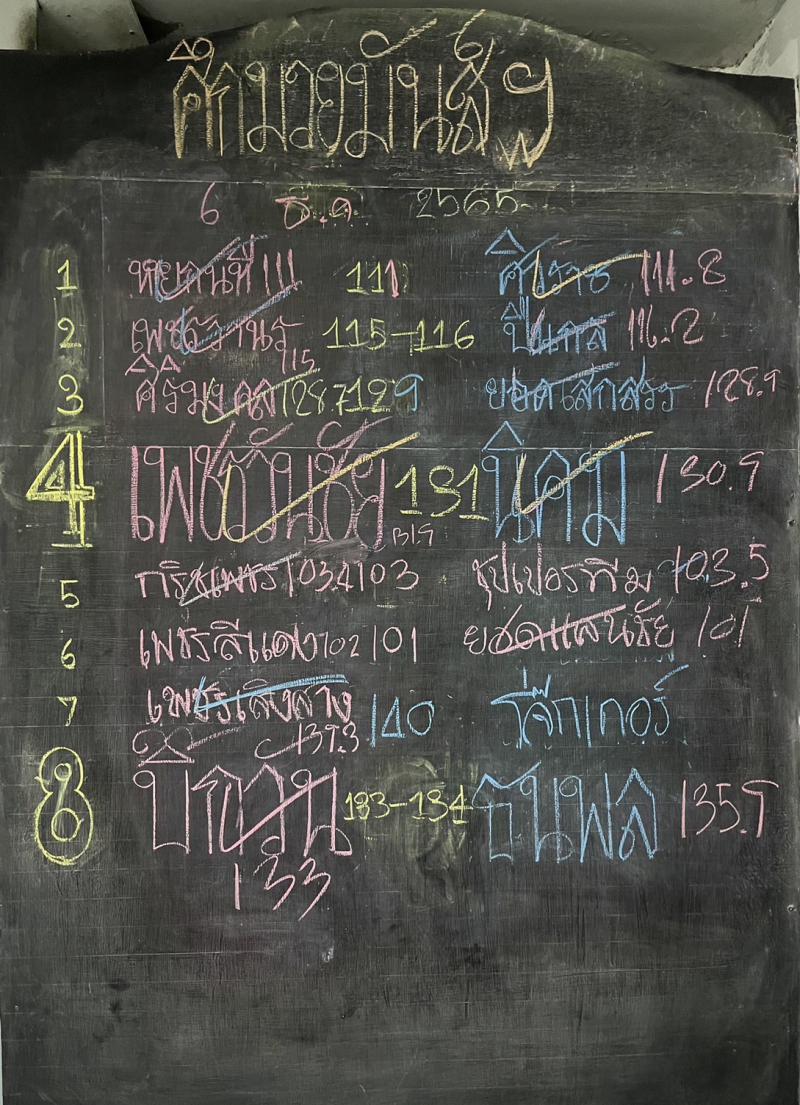 ศึกมวยมันส์ฯ
6 ธ.ค 2565
1 หยกนที 111 ศิวราช 111.8
2 เพชรวานร 115 115-116 ปืนกล 116.2
3 ศิริมงคล 128.7 129 ยอดเสกสรร 128.9
4 เพชรวันชัย 131 นิคม 130.9
5 กริชเพชร 103.4 103 ซุปเปอร์ทีม 103.5
6 เพชรสีแดง 102 101 ยอดแสนชัย 101
7 เพชรเสิงสาง 139.3 140 ร็อกเกอร์
8 บิ๊กวัน 133-134 ธันพล 135.9
133